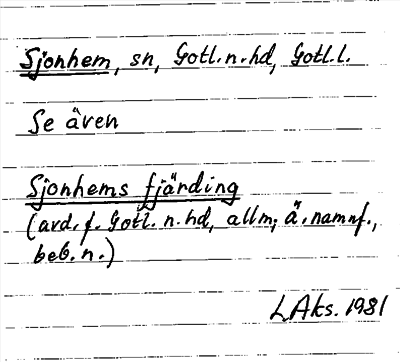 Sjonhem, sn, Gotl. n. hd, Gotl. l.
Se även
Sjonhems fjärding
(avd. f. Gotl. n. hd, allm; ä. namnf.,
beb. n.)
LAks. 1981